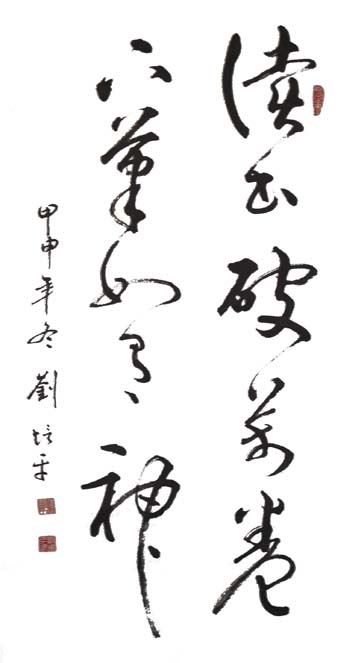 讀書破萬卷
下筆如有神
甲申年冬 劉培平